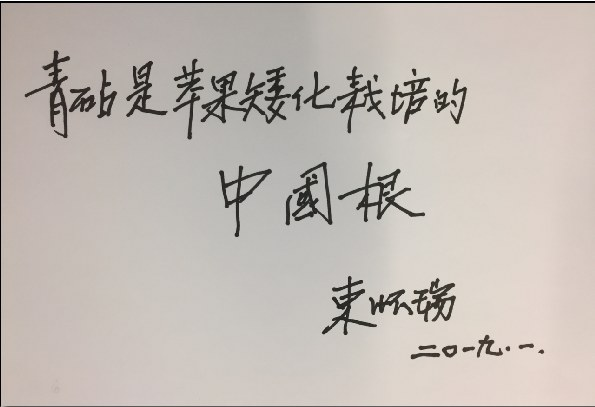 青砧是苹果矮化栽培的
中國根
束怀瑞
二〇一九.一.